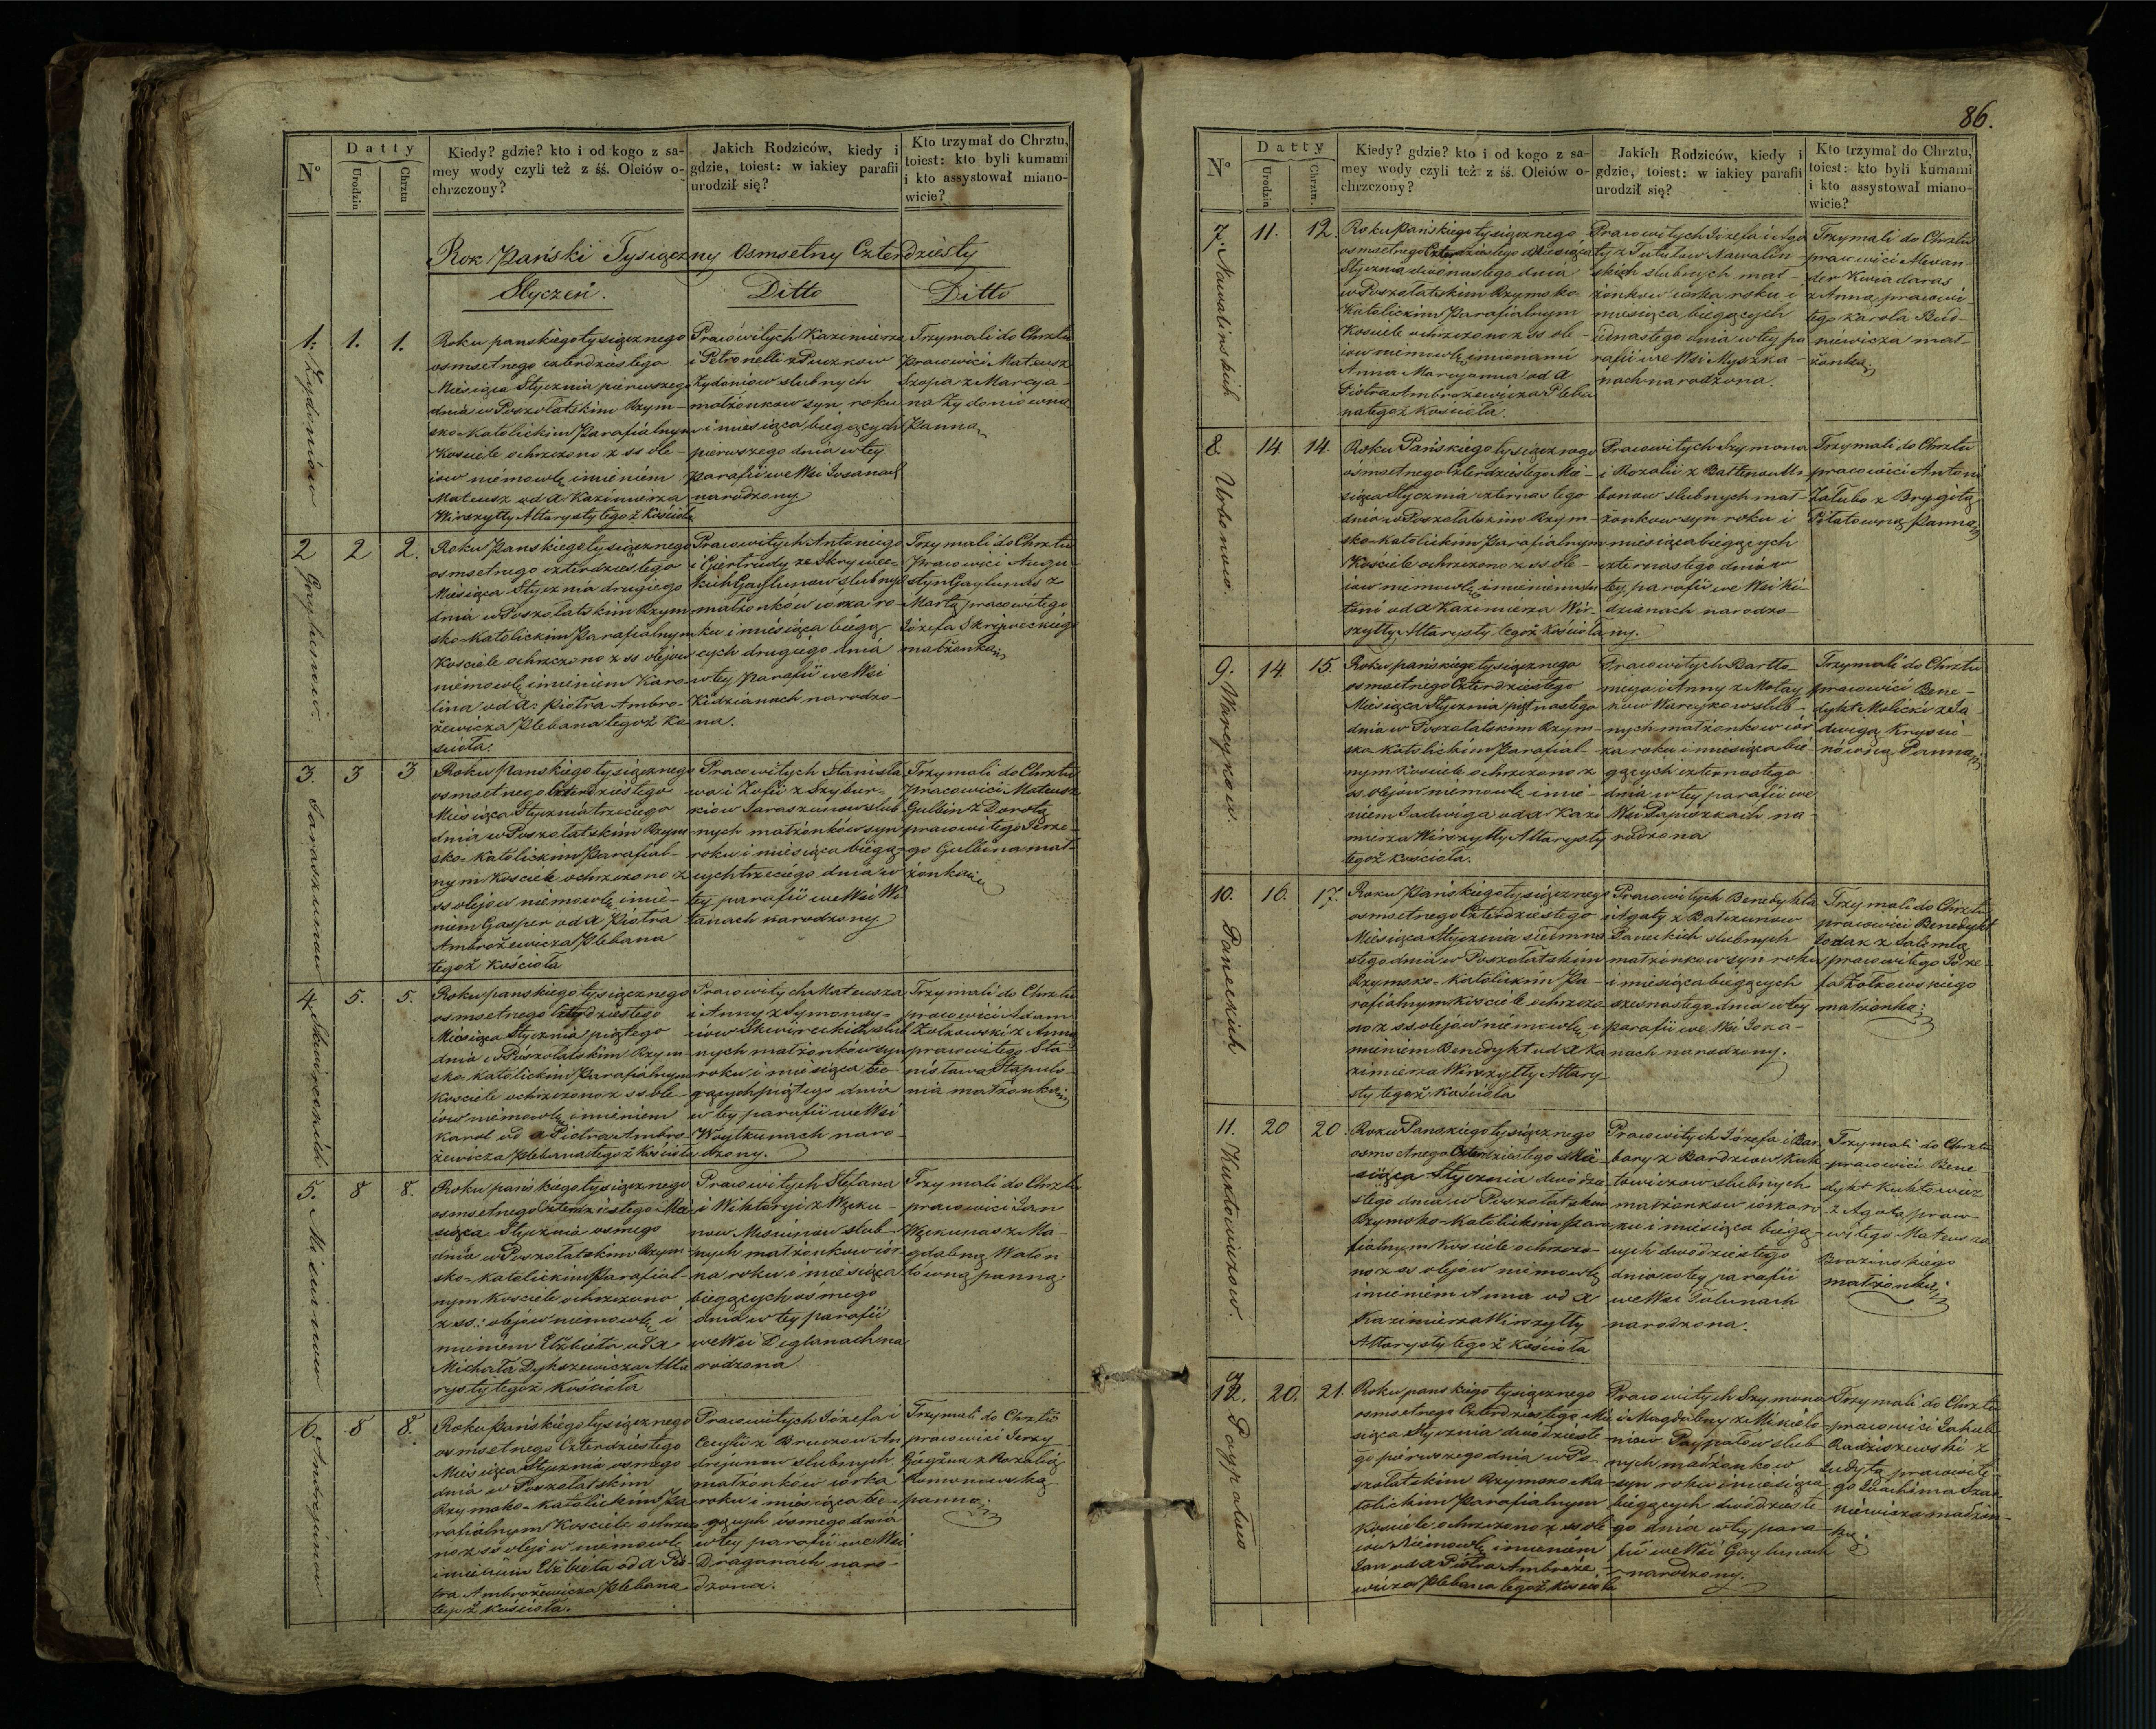 N°
Datty
Urodzin
Chrztu
Kiedy? gdzie? kto i od kogo z sa-
mey wody czyli też z śś. Oleiów o-
chrzczony?
Jakich Rodziców, kiedy i
gdzie, toiest: w iakiey parafii
urodził się?
Kto trzymał do Chrztu,
toiest: kto byli kumami
i kto assystował miano-
wicie?
Rok Pański Tysiączny Osmsetny Czterdziesty
Styczeń.
Ditto
Ditto
1.
Zydoniow
1.
1.
Roku panskiego tysiącznego
osmsetnego czterdziestego
Miesiąca Stycznia pierwszego
dnia w Poszołatskim Rzym-
sko Katolickim Parafialnym
Kościele ochrzczono z ss ole-
iow niemowlę imieniem
Mateusz od X. Kazimierza
Wirszyłły Altarysty tegoż Kościoła
Pracowitych Kazimierza
i Petronelli z Puzkow
Zydoniow slubnych
małżonkow syn, roku
i miesiąca biegących
pierwszego dnia w tey
Parafii we Wsi Iosanach
narodzony
Trzymali do Chrztu
Pracowici Mateusz
Szopa z Marcya-
na Zydoniowną
Panną
2
2
2.
Roku Panskiego tysiącznego
osmsetnego czterdziestego
Miesiąca Stycznia drugiego
dnia w Poszołatskim Rzym-
sko Katolickim Parafialnym
Kościele ochrzczono z ss olejow
niemowlę imieniem Karo-
lina od X. Piotra Ambro-
żewicza Plebana tegoż Ko-
ścioła.
Pracowitych Antoniego
i Giertrudy ze Skrywec-
kich Gayłunow ślubnych
małżonków córka ro-
ku i miesiąca biegą
cych drugiego dnia
w tey Parafii we Wsi
Kidzianach narodzo-
na.
Trzymali do Chrztu
Pracowici Augu-
styn Gayłunas z
Martą pracowitego
Józefa Skrzyweckiego
małżonką
3.
Taraszunow
3
3
Roku Panskiego tysiącznego
osmsetnego Czterdziestego
Miesiąca Stycznia trzeciego
dnia w Poszołatskim Rzym-
sko-Katolickim Parafial-
nym Kościele ochrzczono z
ss olejow niemowlę imie-
niem Gasper od X Piotra
Ambrożewicza Plebana
tegoż Kościoła
Pracowitych Stanisła
wa i Zofii z Szybur-
kiow Taraszunow slub-
nych małżonków syn
roku i miesiąca biegą-
cych trzeciego dnia w
tey parafii we Wsi Wi
tanach narodzony
Trzymali do Chrztu
Pracowici Mateusz
Gulbin z Dorotą
pracowitego Jerze-
go Gulbina mał-
żonką
4.
Skwireckich
5.
5.
Roku panskiego tysiącznego
osmsetnego Czterdziestego
Miesiąca Stycznia piątego
dnia w Poszołatskim Rzym-
sko-Katolickim Parafialnym
Kościele ochrzczono z ss ole-
iow niemowlę imieniem
Karol od X Piotra Ambro-
żewicza Plebana tegoż Kościoła
Pracowitych Mateusza
i Anny z Symonay-
ciow Skwireckich slub
nych małżonków syn
roku i miesiąca bie-
gących piątego dnia
w tey parafii we Wsi
Woytkunach naro-
dzony.
Trzymali do Chrztu
pracowici Adam
Zołkowski z Anną
pracowitego Sta-
nisława Stapuło-
nia małżonką
5.
Misiunow
8
8.
Roku pańskiego tysiącznego
osmsetnego Czterdziestego Mie
siąca Stycznia osmego
dnia w Poszołatskim Rzym-
sko-katolickim Parafial-
nym Kościele ochrzczono
z ss: olejow niemowlę i
mieniem Elżbieta od X
Michała Dyksewicza Alta
rysty tegoż Kościoła
Pracowitych Stefana
i Wiktoryi z Węcku-
now Misiunow slub-
nych małżonkow cór-
ka roku i miesiąca
biegących osmego
dnia w tey parafii
we Wsi Diglanach na
rodzona
Trzymali do Chrztu
pracowici Jan
Węckunas z Ma-
gdaleną Waton
łówną panną
6.
Andrejunow
8
8.
Roku Pańskiego tysiącznego
osmsetnego Czterdziestego
Miesiąca Stycznia osmego
dnia w Poszołatskim
Rzymsko-Katolickim Pa-
rafialnym Kościele ochrzczo-
no z ss olejów niemowlę
imieniem Elżbieta od X Pio-
tra Ambrożewicza Plebana
tegoż Kościoła.
Pracowitych Józefa i
Cecylii z Bruzow An
drejunow slubnych
małżonków córka
roku i miesiąca bie-
gących osmego dnia
w tey parafii we Wsi
Draganach naro-
dzona.
Trzymali do Chrztu
pracowici Jerzy
z Rozalią
Romanowską
panną
86.
N°
Datty
Urodzin
Chrztu.
Kiedy? gdzie? kto i od kogo z sa-
mey wody czyli też z śś. Oleiów o-
chrzczony?
Jakich Rodziców, kiedy i
gdzie, toiest: w iakiey parafii
urodził się?
Kto trzymał do Chrztu,
toiest: kto byli kumami
i kto assystował miano-
wicie?
7.
Nawalinskich
11.
12.
Roku Pańskiego tysiącznego
osmsetnego Czterdziestego Miesiąca
Stycznia dwonastego dnia
w Poszołatskim Rzymsko-
Katolickim Parafialnym
Kościele ochrzczono z ss ole-
iow niemowlę imionami
Anna Maryanna od X
Piotra Ambrożewicza Pleba
na tegoż Kościoła.
Pracowitych Józefa i Aga
ty z Tutułow Nawalin-
skich slubnych mał-
żonkow corka roku i
miesiąca biegących
idnastego dnia w tey pa
rafii we Wsi Myszka-
nach narodzona.
Trzymali do Chrztu
pracowici Alexan-
der Kwiadaras
z Anną pracowi-
tego Karola Bud-
niewicza mał-
żonką
8.
Urbonow.
14
14
Roku Pańskiego tysiącznego
ośmsetnego Czterdziestego Mie-
siąca Stycznia czternastego
dnia w Poszołatskim Rzym-
sko-Katolickim Parafialnym
Kościele ochrzczono z ss ole-
iow niemowlę imieniem An
toni od X Kazimierza Wir-
szyłły Altarysty tegoż Kościoła
Pracowitych Szymona
i Rozalii z Battenow Ur-
bonow slubnych mał-
żonkow syn roku i
miesiąca biegących
czternastego dnia w
tey parafii we Wsi Ki-
dzianach narodzo-
ny.
Trzymali do Chrztu
pracowici Antoni
Załubo z Brygitą
Piłatowną Panną
9.
Warcykow
14
15.
Roku pańskiego tysiącznego
osmsetnego Czterdziestego
Miesiąca Stycznia piętnastego
dnia w Poszołatskim Rzym-
sko Katolickim Parafial-
nym Kościele ochrzczono z
ss olejów niemowlę imie-
niem Jadwiga od X Kazi
mierza Wirszyłły Altarysty
tegoż Kościoła.
Pracowitych Bartło-
mieja i Anny z Matay
now Warcykow slub-
nych małżonkow cór
ka roku i miesiąca bie-
gących czternastego
dnia w tey parafii we
Wsi Papiszkach na-
rodzona
Trzymali do Chrztu
pracowici Bene-
dykt Malecki z Ja
dwigą Krysiu-
nówną Panną
10.
Paneckich
16.
17.
Roku Pańskiego tysiącznego
osmsetnego Czterdziestego
Miesiąca Stycznia siedmna
stego dnia w Poszołatskim
Rzymsko-Katolickim Pa-
rafialnym Kościele ochrzczo
no z ss olejów niemowlę i
mieniem Benedykt od X Ka
zimierza Wirszyłły Altary-
sty tegoż Kościoła
Pracowitych Benedykta
i Agaty z Batzunow
Paneckich slubnych
małżonkow syn roku
i miesiąca biegących
szesnastego dnia w tey
parafii we Wsi Ioza-
nach narodzony.
Trzymali do Chrztu
pracowici Benedykt
Jodax z Salomeą
pracowitego Józe-
fa Zołkowskiego
małżonką
11.
Kuktowiczow.
20
20.
Roku Panskiego tysiącznego
osmsetnego Czterdziestego Mie
siąca Stycznia dwódzie
stego dnia w Poszołatskim
Rzymsko-Katolickim Para
fialnym Kościele ochrzczo-
no z ss olejów niemowlę
imieniem Anna od X
Kazimierza Wirszyłły
Altarysty tegoż Kościoła
Pracowitych Józefa i Bar
bary z Bardziow Kuk
towiczow slubnych
małżonkow córka ro
ku i miesiąca biegą-
cych dwódziestego
dnia w tey parafii
we Wsi Tolunach
narodzona.
Trzymali do Chrztu
pracowici Bene
dykt Kuktowicz
z Agatą praco-
witego Mateusza
Brazinskiego
małżonką
12.
Paypałow
20.
21.
Roku panskiego tysiącznego
osmsetnego Czterdziestego Mie
siąca Stycznia dwódzieste
go pierwszego dnia w Po-
szołatskim Rzymsko Ka-
tolickim Parafialnym
Kościele ochrzczono z ss ole
iow niemowlę imieniem
Jan od X Piotra Ambroże-
wicza Plebana tegoż Kościoła
Pracowitych Szymona
i Magdaleny z Mikielo-
niow Paypałow slub
nych małżonkow
syn roku i miesiąca
biegących dwódzieste
go dnia w tey para-
fii we Wsi Gayłunach
narodzony.
Trzymali do Chrztu
pracowici Jakub
Radziszewski z
Judytą pracowite-
go Joachima
małżon-
ką